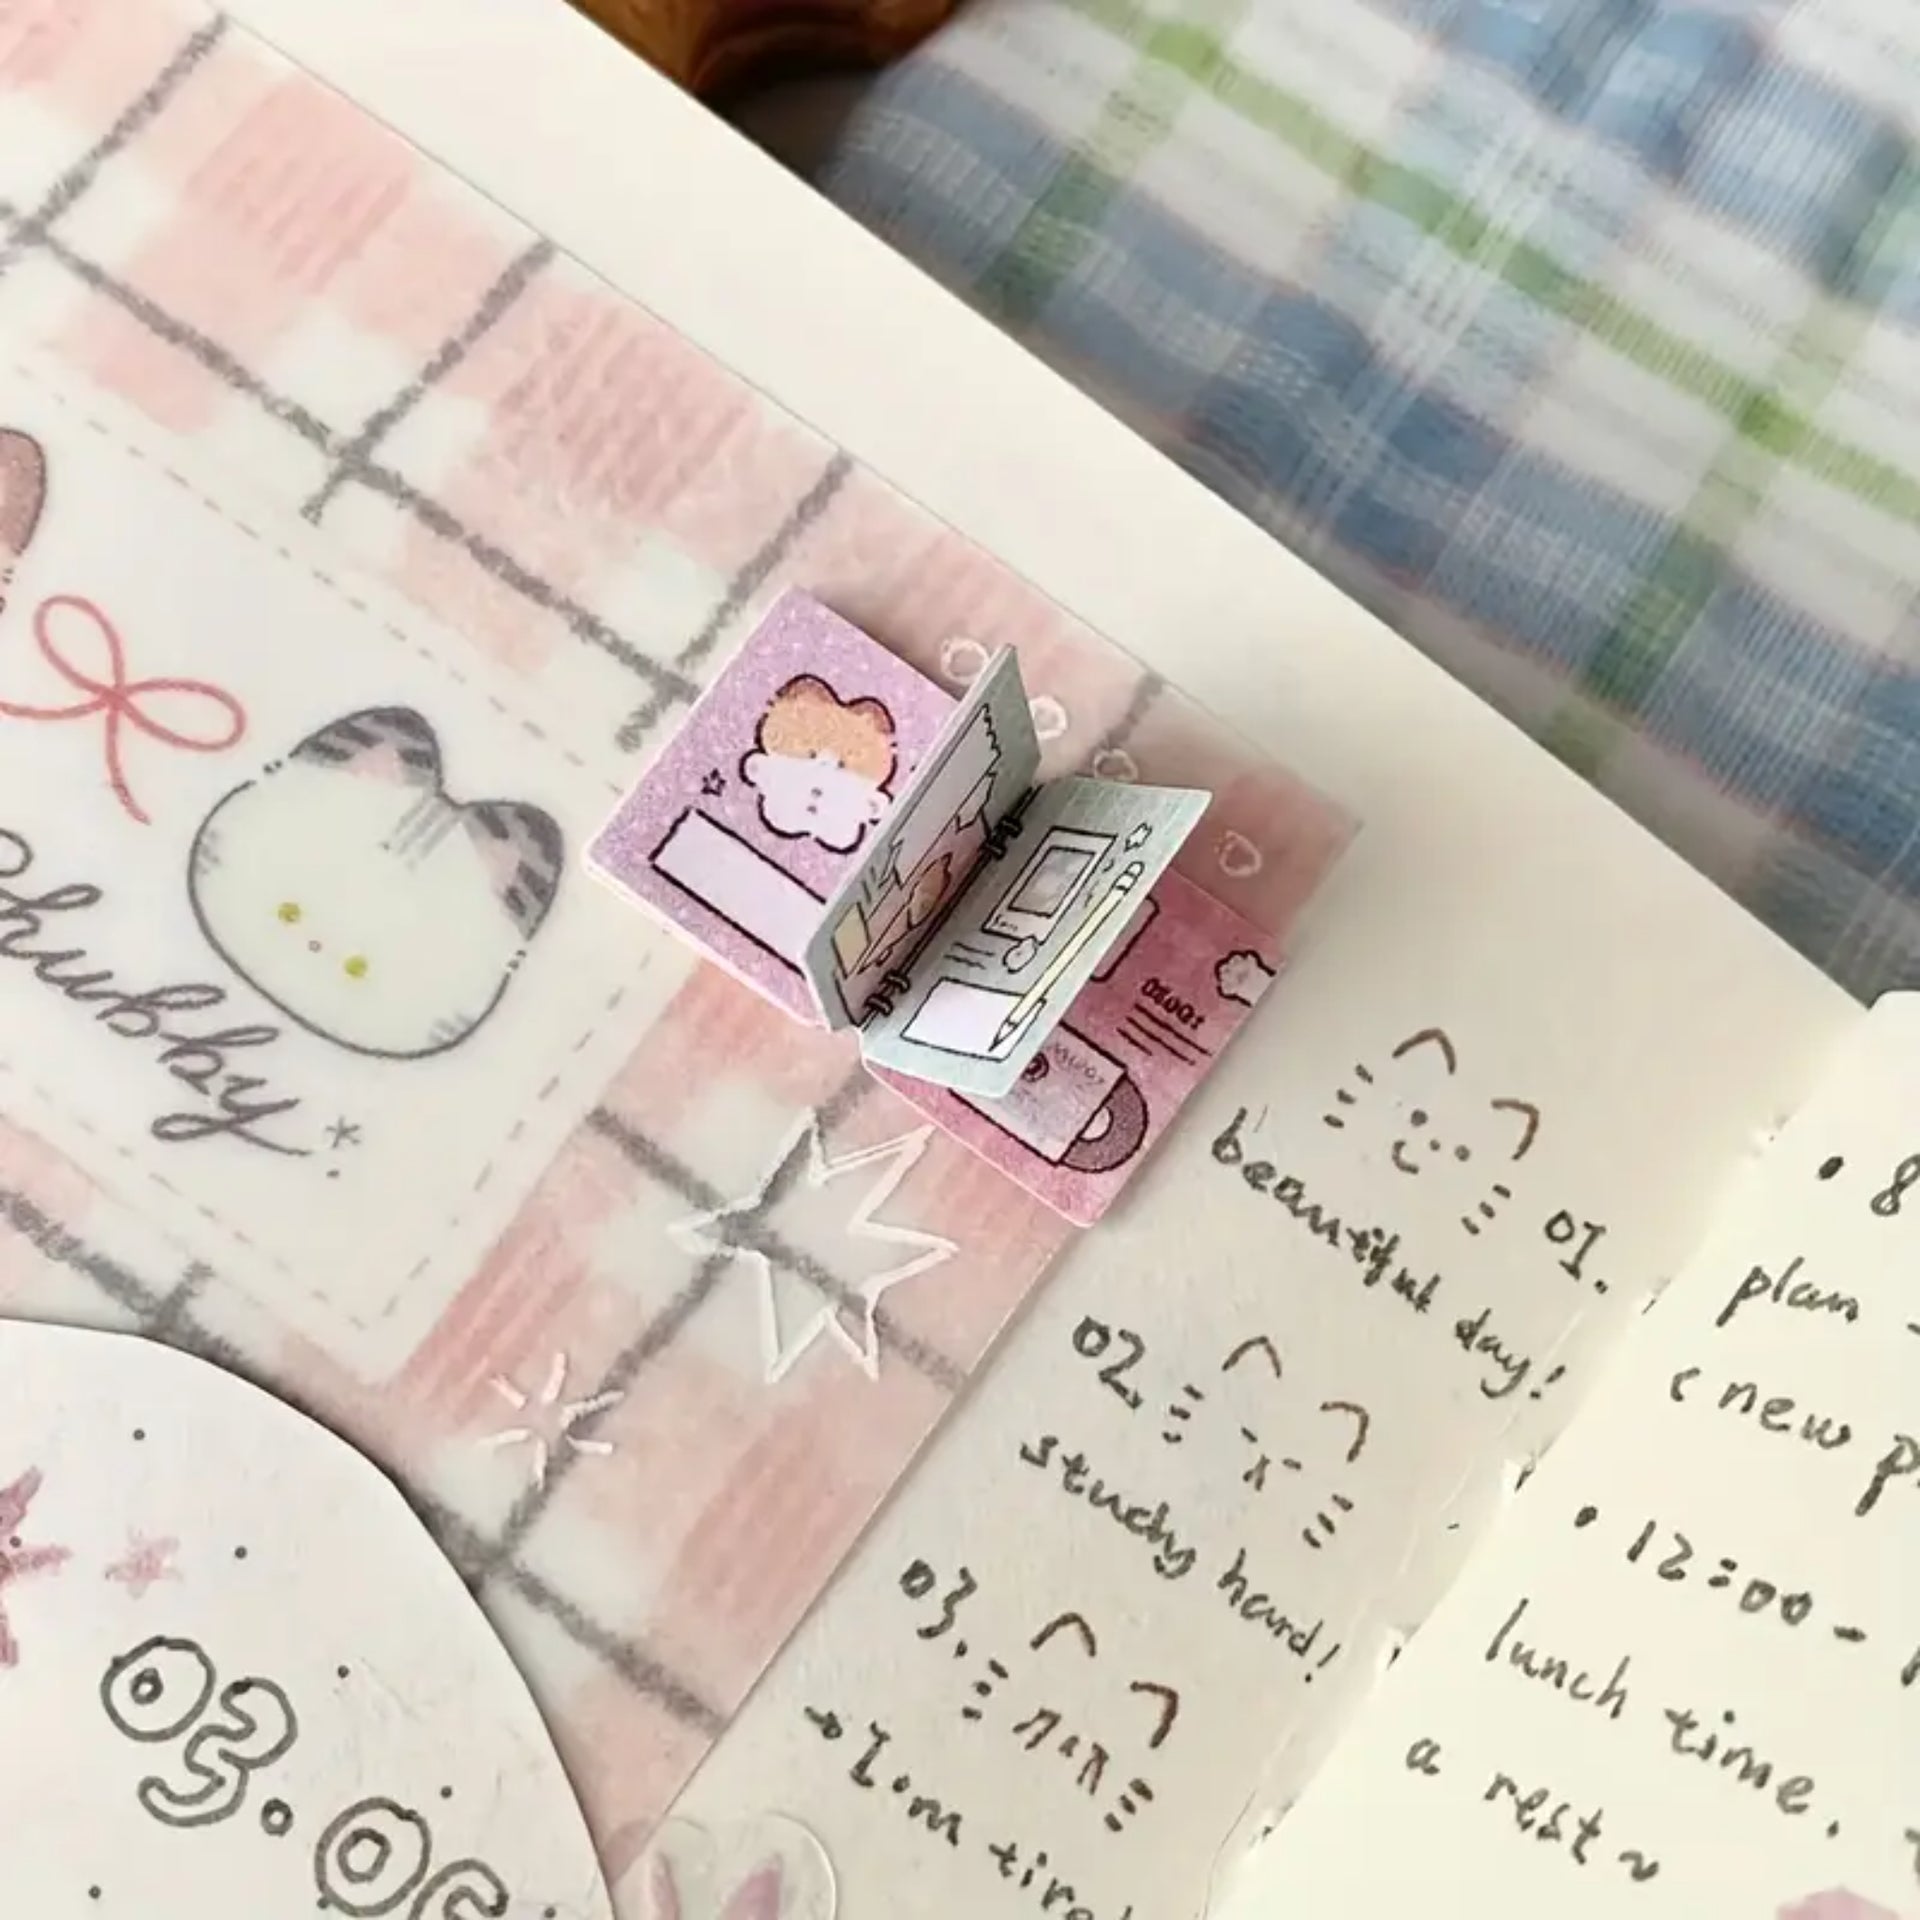 Chubby
01.
beautiful day!
02.
study hard!
03.
→ I·m tired
03.06
• 8
plan -
( new p
• 12:00 -
lunch time.
a rest ~